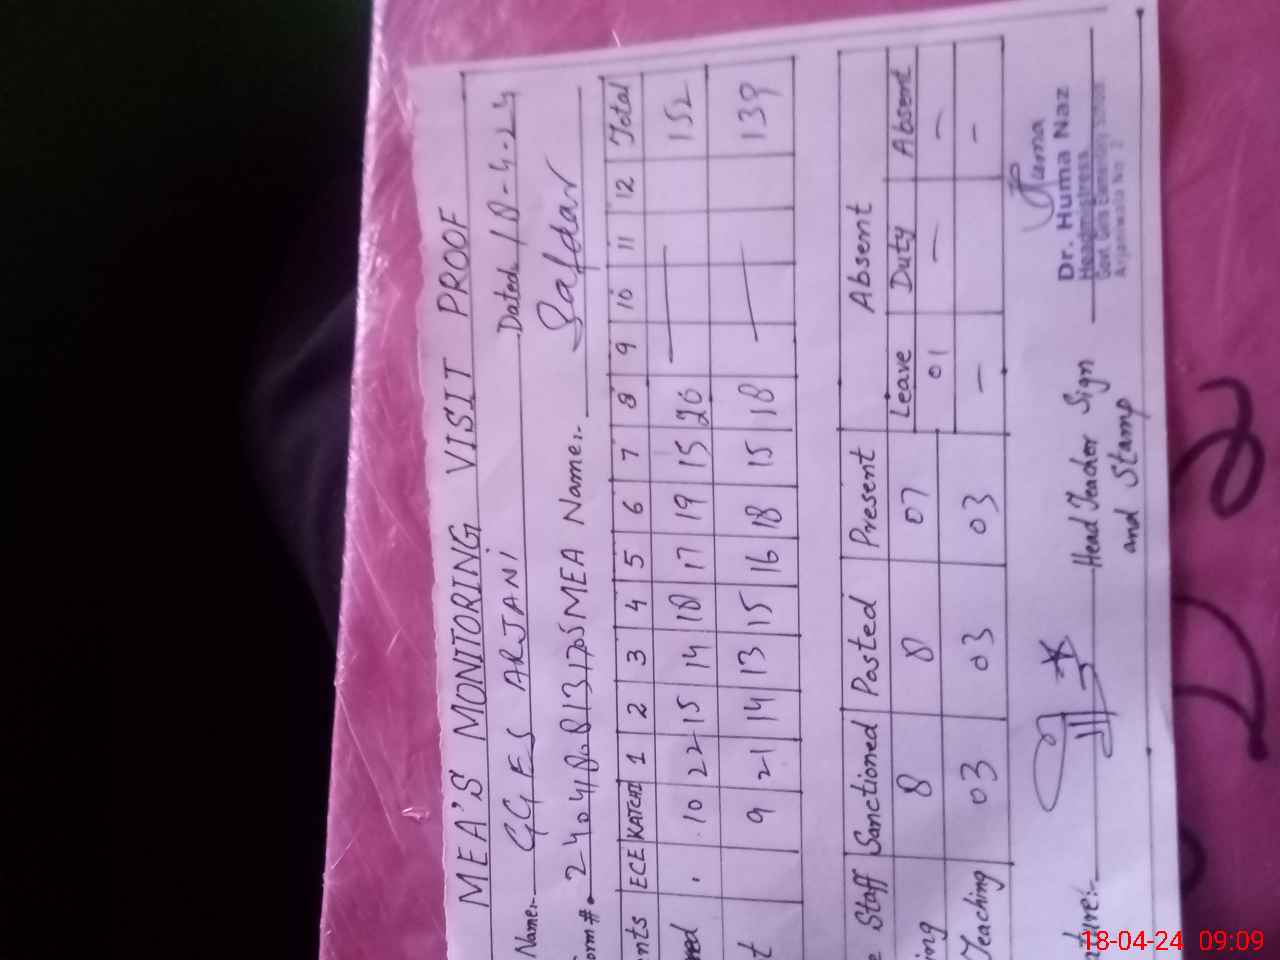 MEA'S MONITORING VISIT PROOF
Name:- GGES ARJANI Dated 18-4-24
orm #. MEA Name:- Safdar
nts ECE KATCHI 1 2 3 4 5 6 7 8 9 10 11 12 Total
red . 10 22 15 14 18 17 19 15 20 — 152
t 9 21 14 13 15 16 18 15 18 — 139
e Staff Sanctioned Posted Present Absent
Leave Duty Absent
ing 8 8 07 01 - -
Teaching 03 03 03 - - -
ture:- Head Teacher Sign and Stamp
Huma
Dr. Huma Naz
Headmistress
Govt. Girls Elementary School
Arjanwala No. 2
18-04-24 09:09